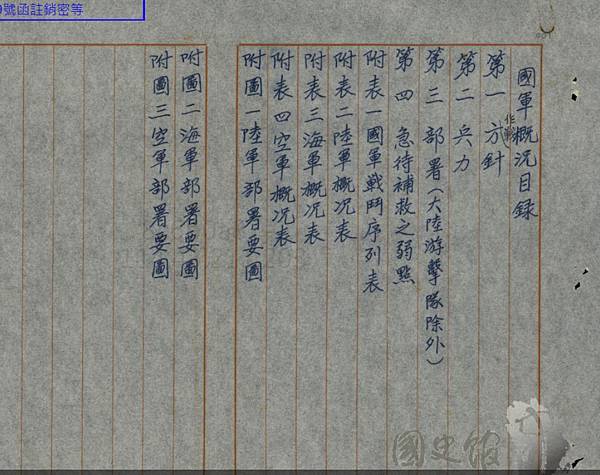 號函註銷密等
國軍概況目錄
第一 作戰方針
第二 兵力
第三 部署(大陸游擊隊除外)
第四 急待補救之弱點
附表一國軍戰鬥序列表
附表二陸軍概況表
附表三海軍概況表
附表四空軍概況表
附圖一陸軍部署要圖
附圖二海軍部署要圖
附圖三空軍部署要圖
國史館